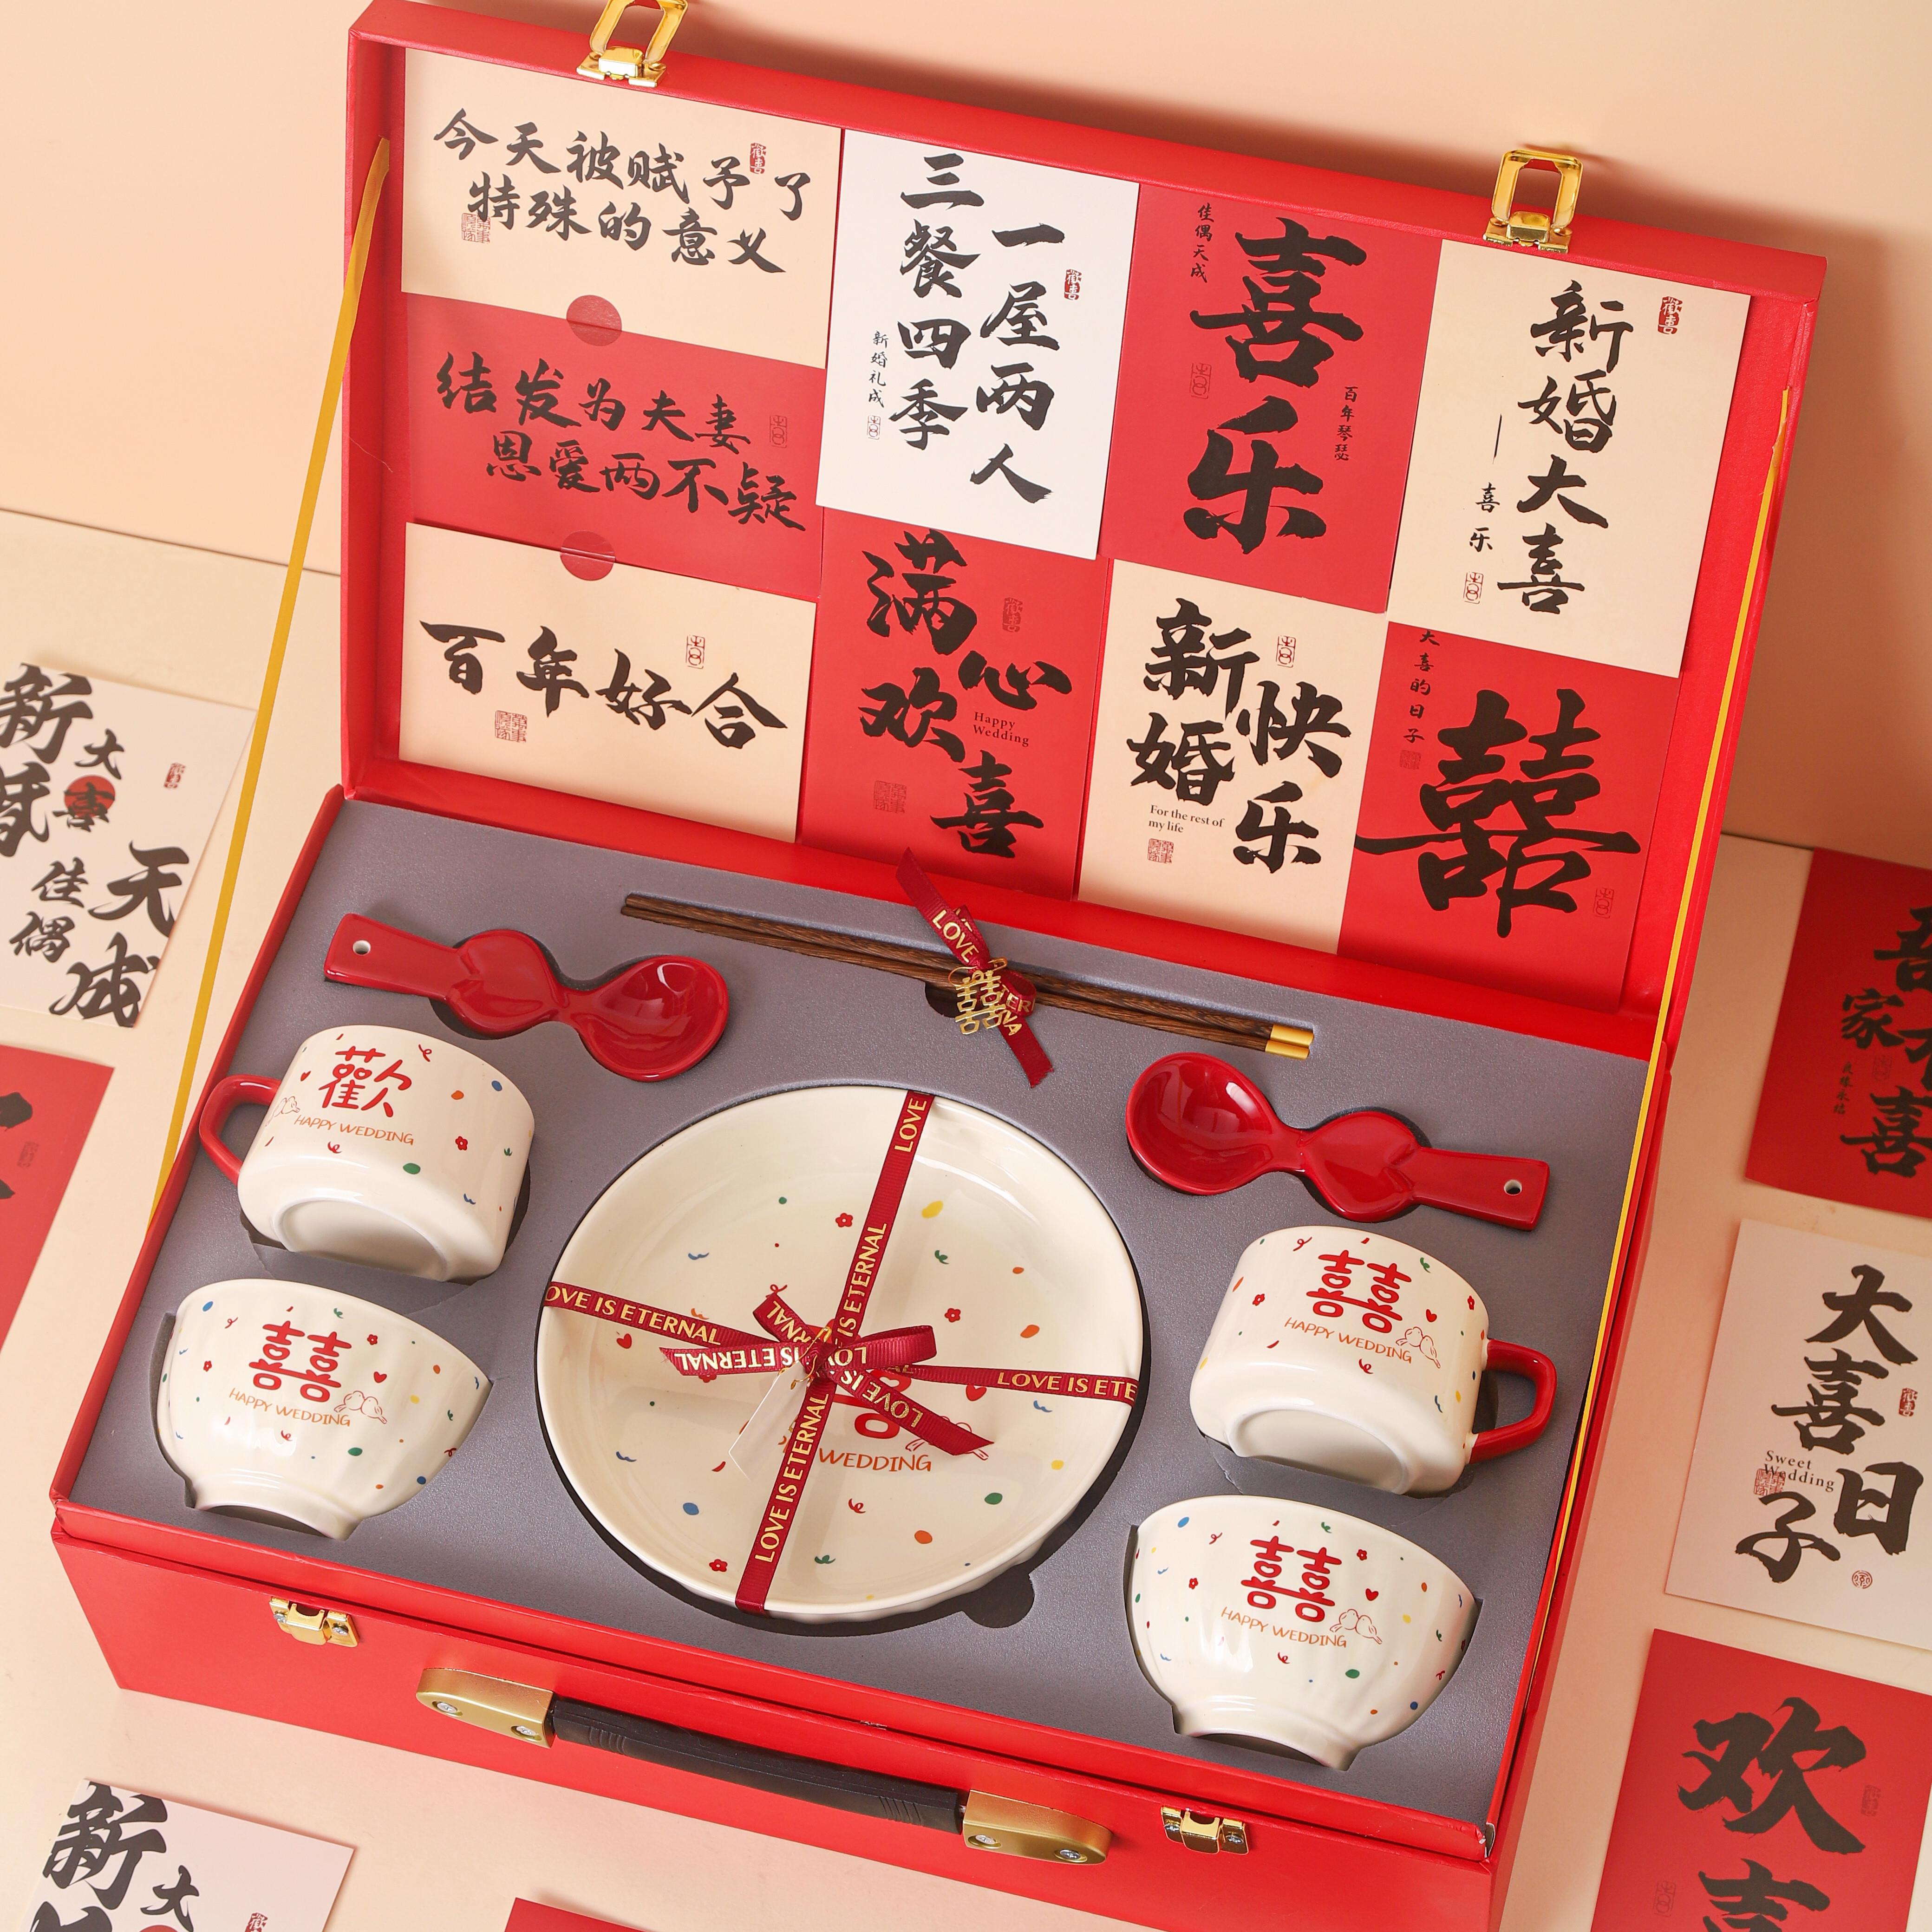 今天被赋予了
特殊的意义
结发为夫妻
恩爱两不疑
百年好合
一屋两人
三餐四季
新婚礼成
佳偶天成
喜乐
百年琴瑟
新婚大喜
喜乐
满心
欢喜
Happy
Wedding
新婚
快乐
For the rest of
my life
大喜的日子
囍
新婚
大喜
天成
佳偶
LOVE
囍
歡
HAPPY WEDDING
囍
HAPPY WEDDING
LOVE
LOVE IS ETERNAL
OVE IS ETERNAL
LOVE IS ETE
LOVE IS ETERNAL
WEDDING
囍
HAPPY WEDDING
囍
HAPPY WEDDING
家有
喜
大喜
日子
Sweet
Wedding
欢
喜
新
大